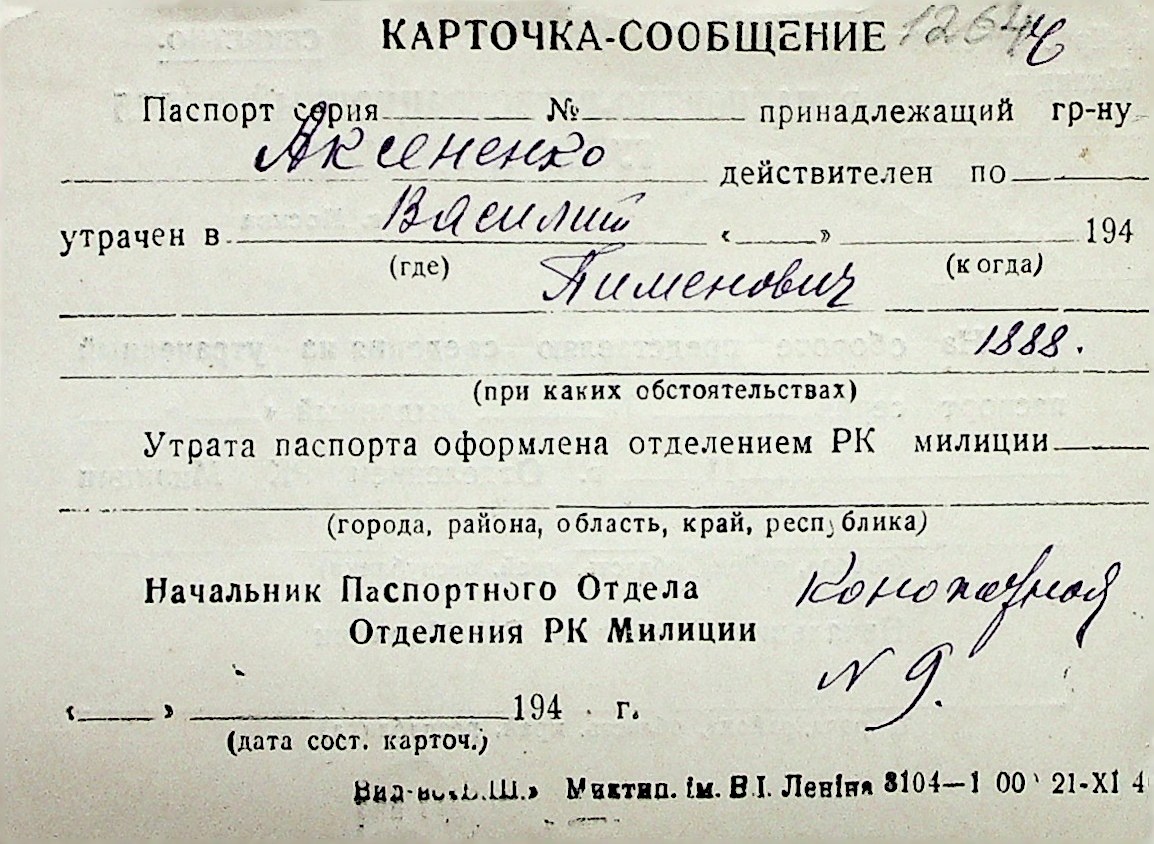 КАРТОЧКА-СООБЩЕНИЕ 1264
Паспорт серия № принадлежащий гр-ну
Аксененко действителен по
утрачен в Василий « » 194
(где) Пименович (когда)
1888.
(при каких обстоятельствах)
Утрата паспорта оформлена отделением РК милиции
(города, района, область, край, республика)
Начальник Паспортного Отдела
Отделения РК Милиции
N 9.
« » 194 г.
(дата сост. карточ.)
Миктип. ім. В.І. Леніна 3104—1 00 21-XI 4